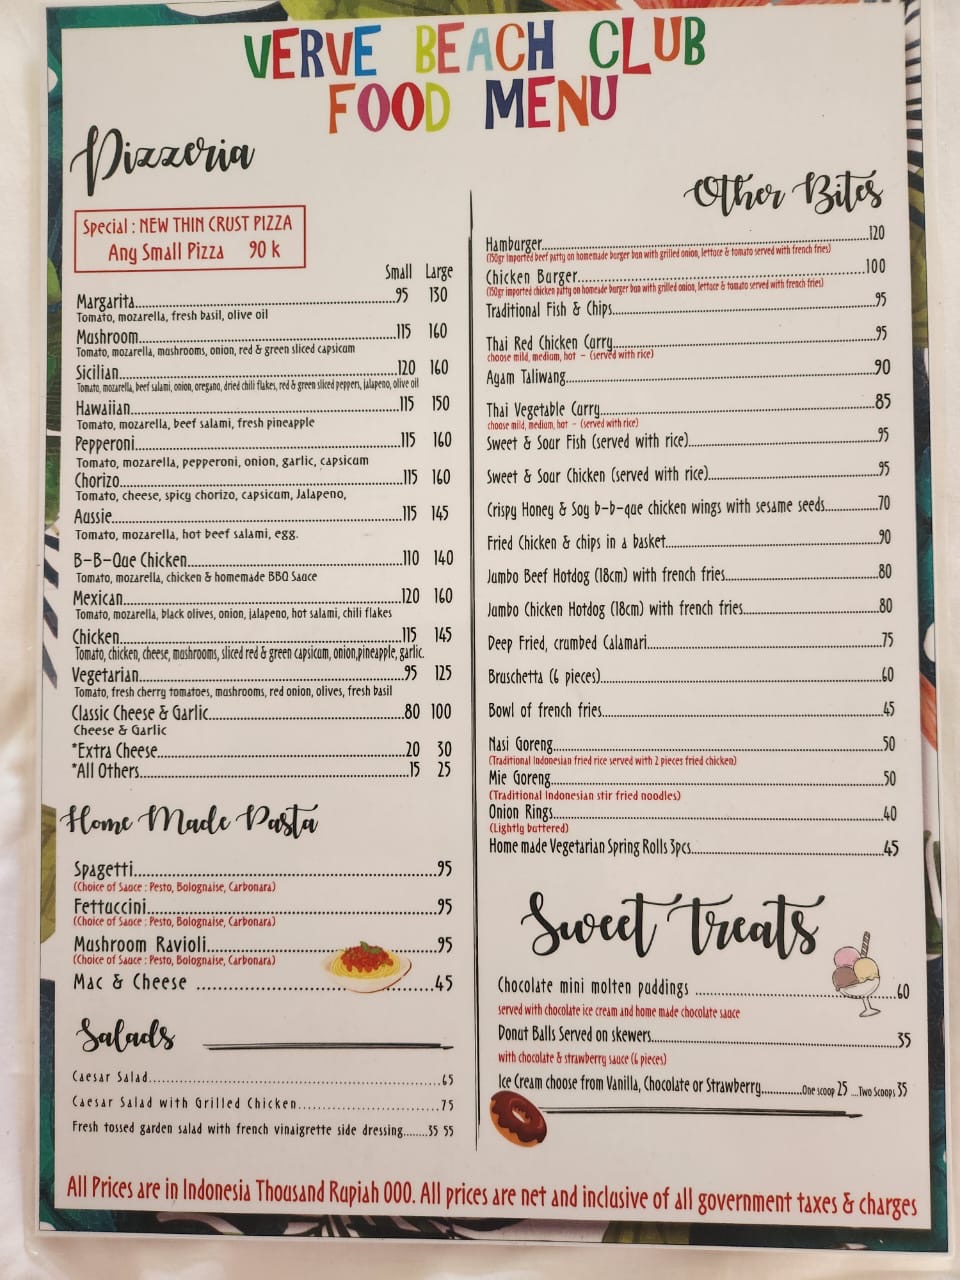 VERVE BEACH CLUB
FOOD MENU
Pizzeria
Special : NEW THIN CRUST PIZZA
Any Small Pizza 90 k
Small Large
Margarita...95 130
Tomato, mozarella, fresh basil, olive oil
Mushroom...115 160
Tomato, mozarella, mushrooms, onion, red & green sliced capsicum
Sicilian...120 160
Tomato, mozarella, beef salami, onion, oregano, dried chili flakes, red & green sliced peppers, jalapeno, olive oil
Hawaiian...115 150
Tomato, mozarella, beef salami, fresh pineapple
Pepperoni...115 160
Tomato, mozarella, pepperoni, onion, garlic, capsicum
Chorizo...115 160
Tomato, cheese, spicy chorizo, capsicum, Jalapeno,
Aussie...115 145
Tomato, mozarella, hot beef salami, egg.
B-B-Que Chicken...110 140
Tomato, mozarella, chicken & homemade BBQ Sauce
Mexican...120 160
Tomato, mozarella, black olives, onion, jalapeno, hot salami, chili flakes
Chicken...115 145
Tomato, chicken, cheese, mushrooms, sliced red & green capsicum, onion,pineapple, garlic.
Vegetarian...95 125
Tomato, fresh cherry tomatoes, mushrooms, red onion, olives, fresh basil
Classic Cheese & Garlic...80 100
Cheese & Garlic
*Extra Cheese...20 30
*All Others...15 25
Home Made Pasta
Spagetti...95
(Choice of Sauce : Pesto, Bolognaise, Carbonara)
Fettuccini...95
(Choice of Sauce : Pesto, Bolognaise, Carbonara)
Mushroom Ravioli...95
(Choice of Sauce : Pesto, Bolognaise, Carbonara)
Mac & Cheese ...45
Salads
Caesar Salad...65
Caesar Salad with Grilled Chicken...75
Fresh tossed garden salad with french vinaigrette side dressing...35 55
Other Bites
Hamburger...120
(150gr imported beef patty on homemade burger bun with grilled onion, lettuce & tomato served with french fries)
Chicken Burger...100
(150gr imported chicken patty on homeade burger bun with grilled onion, lettuce & tomato served with french fries)
Traditional Fish & Chips...95
Thai Red Chicken Curry...95
choose mild, medium, hot - (served with rice)
Ayam Taliwang...90
Thai Vegetable Curry...85
choose mild, medium, hot - (served with rice)
Sweet & Sour Fish (served with rice)...95
Sweet & Sour Chicken (served with rice)...95
Crispy Honey & Soy b-b-que chicken wings with sesame seeds...70
Fried Chicken & chips in a basket...90
Jumbo Beef Hotdog (18cm) with french fries...80
Jumbo Chicken Hotdog (18cm) with french fries...80
Deep Fried, crumbed Calamari...75
Bruschetta (6 pieces)...60
Bowl of french fries...45
Nasi Goreng...50
(Traditional Indonesian fried rice served with 2 pieces fried chicken)
Mie Goreng...50
(Traditional Indonesian stir fried noodles)
Onion Rings...40
(Lightly buttered)
Home made Vegetarian Spring Rolls 3pcs...45
Sweet Treats
Chocolate mini molten puddings ...60
served with chocolate ice cream and home made chocolate sauce
Donut Balls Served on skewers...35
with chocolate & strawberry sauce (6 pieces)
Ice Cream choose from Vanilla, Chocolate or Strawberry...One scoop 25 ...Two Scoops 35
All Prices are in Indonesia Thousand Rupiah 000. All prices are net and inclusive of all government taxes & charges